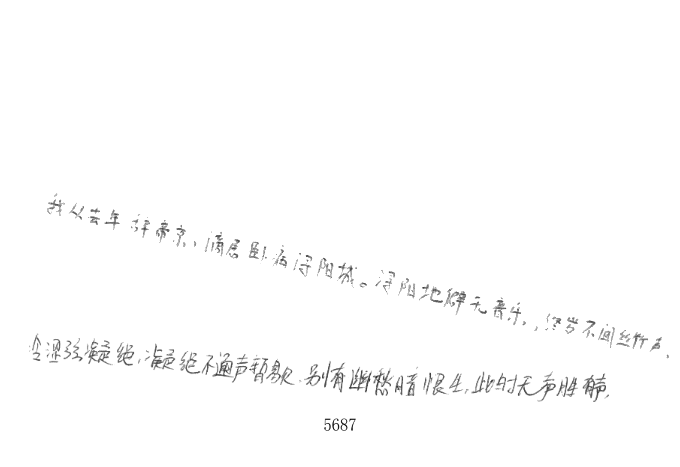 我从去年辞帝京，谪居卧病浔阳城。浔阳地僻无音乐，终岁不闻丝竹声。
冷涩弦凝绝，凝绝不通声暂歇。别有幽愁暗恨生，此时无声胜有声。
5687